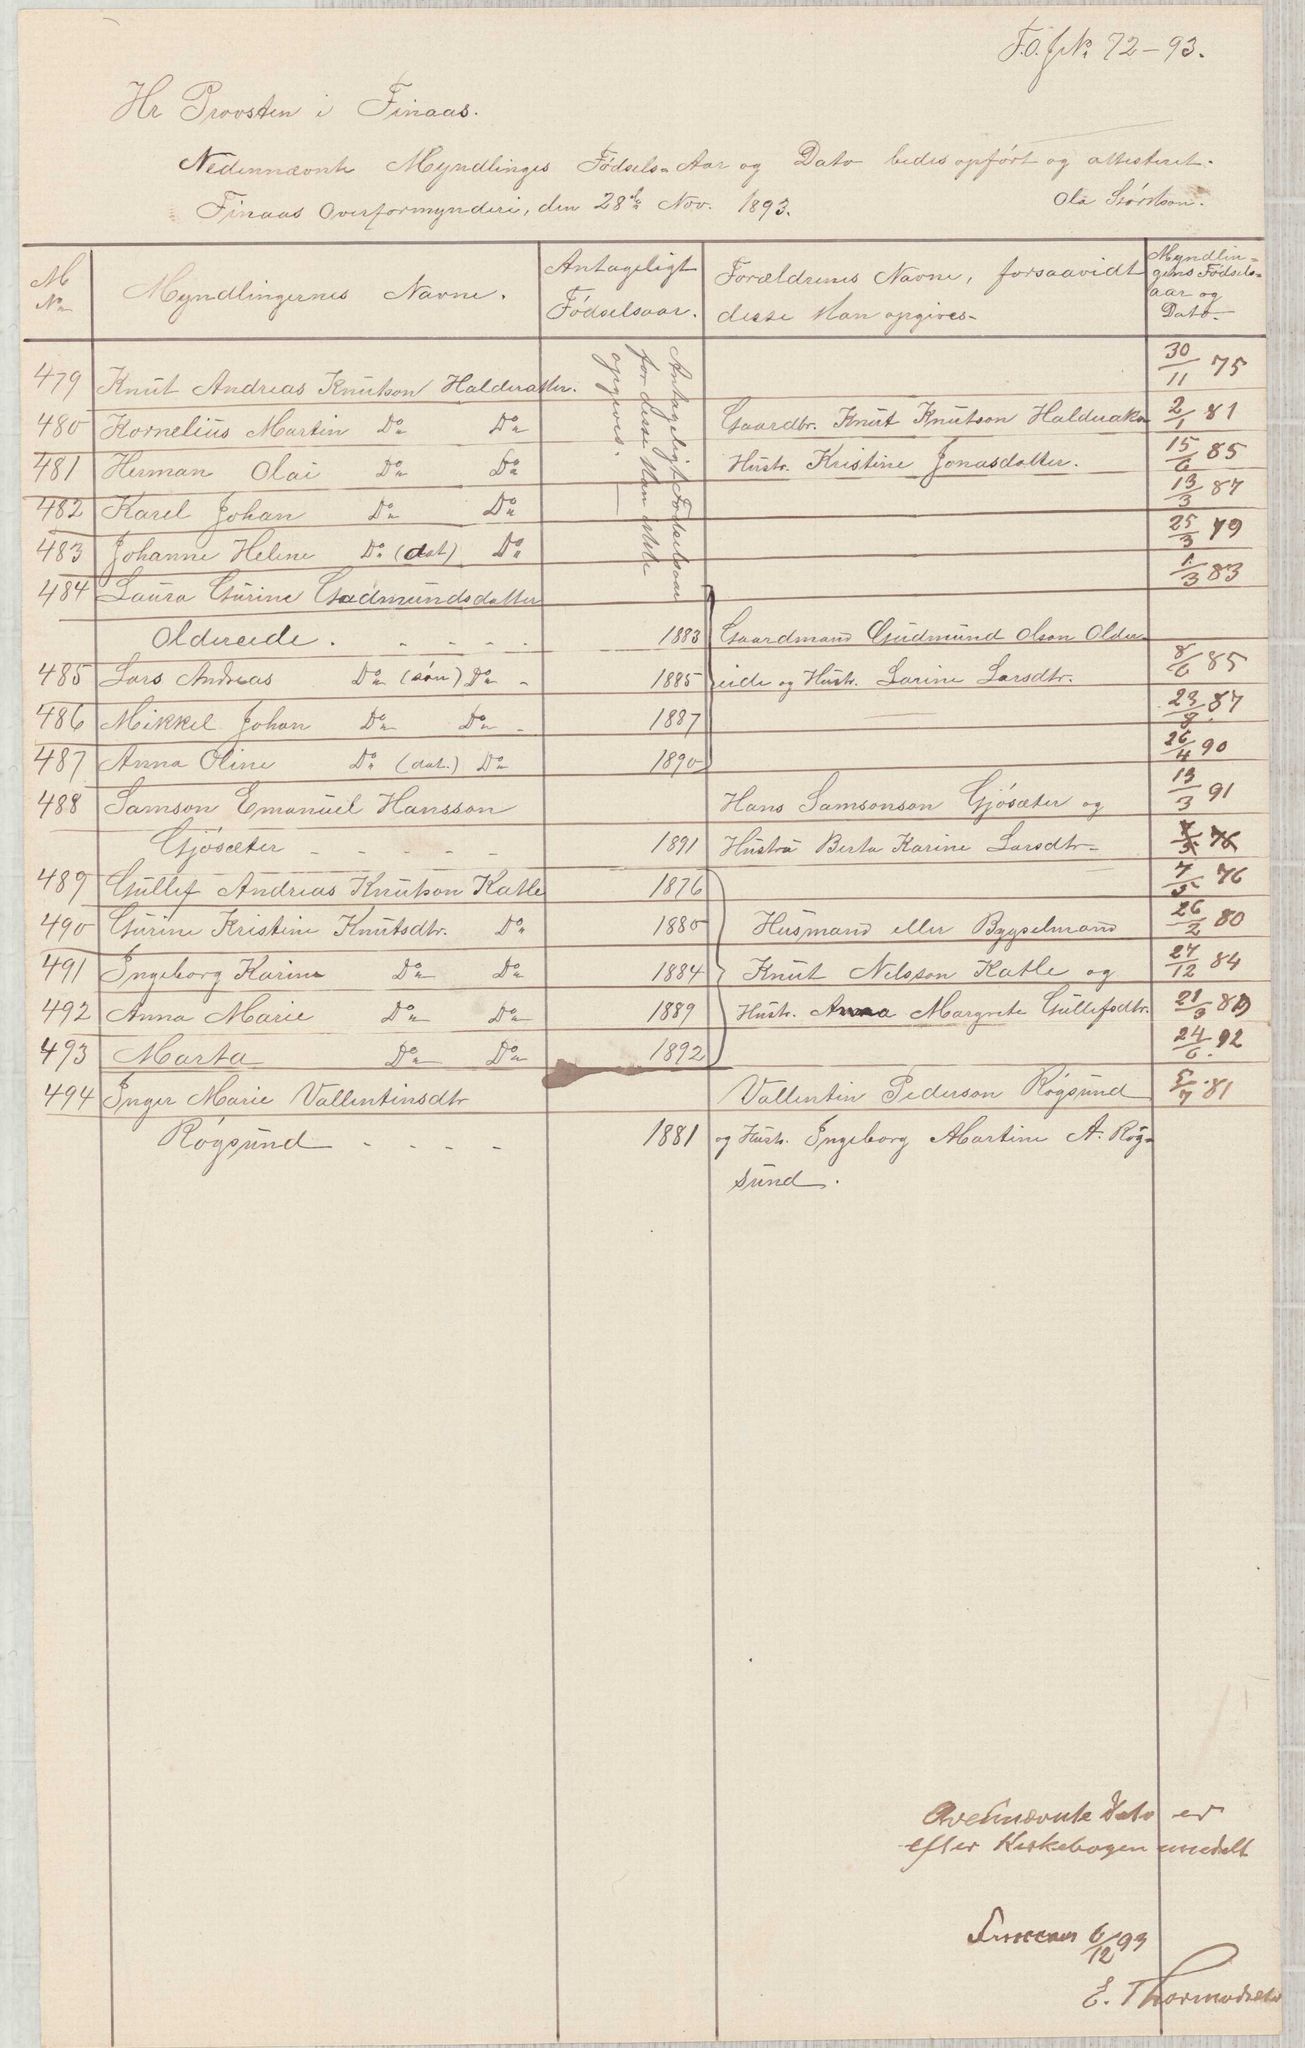 F.O. J.No 72-93.
Hr Provsten i Finaas.
Nedennævnte Myndlinges Fødsels-Aar og Dato bedes opført og attesteret.
Finaas Overformynderi, den 28de Nov. 1893. Ola
M No
Myndlingernes Navne.
Antageligt Fødselsaar.
Forældrenes Navne, forsaavidt disse kan opgives.
Myndlingens Fødselsaar og Dato.
Antageligt Fødselsaar
for disse kan ikke
opgives.
479 Knut Andreas Knutson 30/11 75
480 Kornelius Martin Do Do Gaardbr. Knut Knutson 2/1 81
481 Herman Olai Do Do Hustr. Kristine Jonasdatter. 15/6 85
482 Karel Johan Do Do 13/3 87
483 Johanne Helene Do (dat) Do 25/3 79
484 Laura Gurine Gudmundsdatter 1/3 83
Oldereide . - - - - 1883 Gaardmand Gudmund Olson Older-
485 Lars Andreas Do (søn) Do - 1885 eide og Hustr. Larine Larsdtr. 8/6 85
486 Mikkel Johan Do Do - 1887 23/8 87
487 Anna Oline Do (dat.) Do 1890 26/4 90
488 Samson Emanuel Hansson Hans Samsonson Gjøsæter og 13/3 91
Gjøsæter - - - - - 1891 Hustru Berta Karine Larsdtr- 7/5 76
489 Gullef Andreas Knutson Katle 1876 7/5 76
490 Gurine Kristine Knutsdtr. Do 1880 Husmand eller Bygselmand 26/2 80
491 Ingeborg Karine Do Do 1884 Knut Nelsson Katle og 27/12 84
492 Anna Marie Do Do 1889 Hustr. Anna Margrete Gullefsdtr. 21/9 89
493 Marta Do Do 1892 24/6 92
494 Inger Marie Vallentinsdtr Vallentin Pederson Røgsund 5/7 81
Røgsund - - - - 1881 og Hustr. Ingeborg Martine A. Røg-
sund.
Ovennævnte Dato er
efter Kirkebogen meddelt
6/12 93
E. Thormodsæter